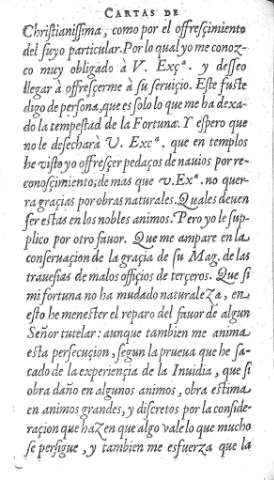 CARTAS DE
Christianissima, como por el offresçimiento
del suyo particular. Por lo qual yo me conoz-
co muy obligado à V. Exçª. y desseo
llegar à offresçerme à su seruiçio. Este fuste
digo de persona, que es solo lo que me ha dexa-
do la tempestad de la Fortuna. Y espero que
no le desechará V. Excª, que en templos
he visto yo offresçer pedaços de nauios por re-
conosçimiento; de mas que V. Exª. no quer-
ra graçias por obras naturales. Quales deuen
ser estas en los nobles animos. Pero yo le sup-
plico por otro fauor. Que me ampare en la
conseruacion de la graçia de su Mag. de las
trauesias de malos offiçios de terçeros. Que si
mi fortuna no ha mudado naturaleza, en
esto he menester el reparo del fauor de algun
Señor tutelar: aunque tambien me anima
esta persecuçion, segun la prueua que he sa-
cado de la experiençia de la Inuidia, que si
obra daño en algunos animos, obra estima
en animos grandes, y discretos por la conside-
raçion que hazen que algo vale lo que mucho
se persigue, y tambien me esfuerza que la